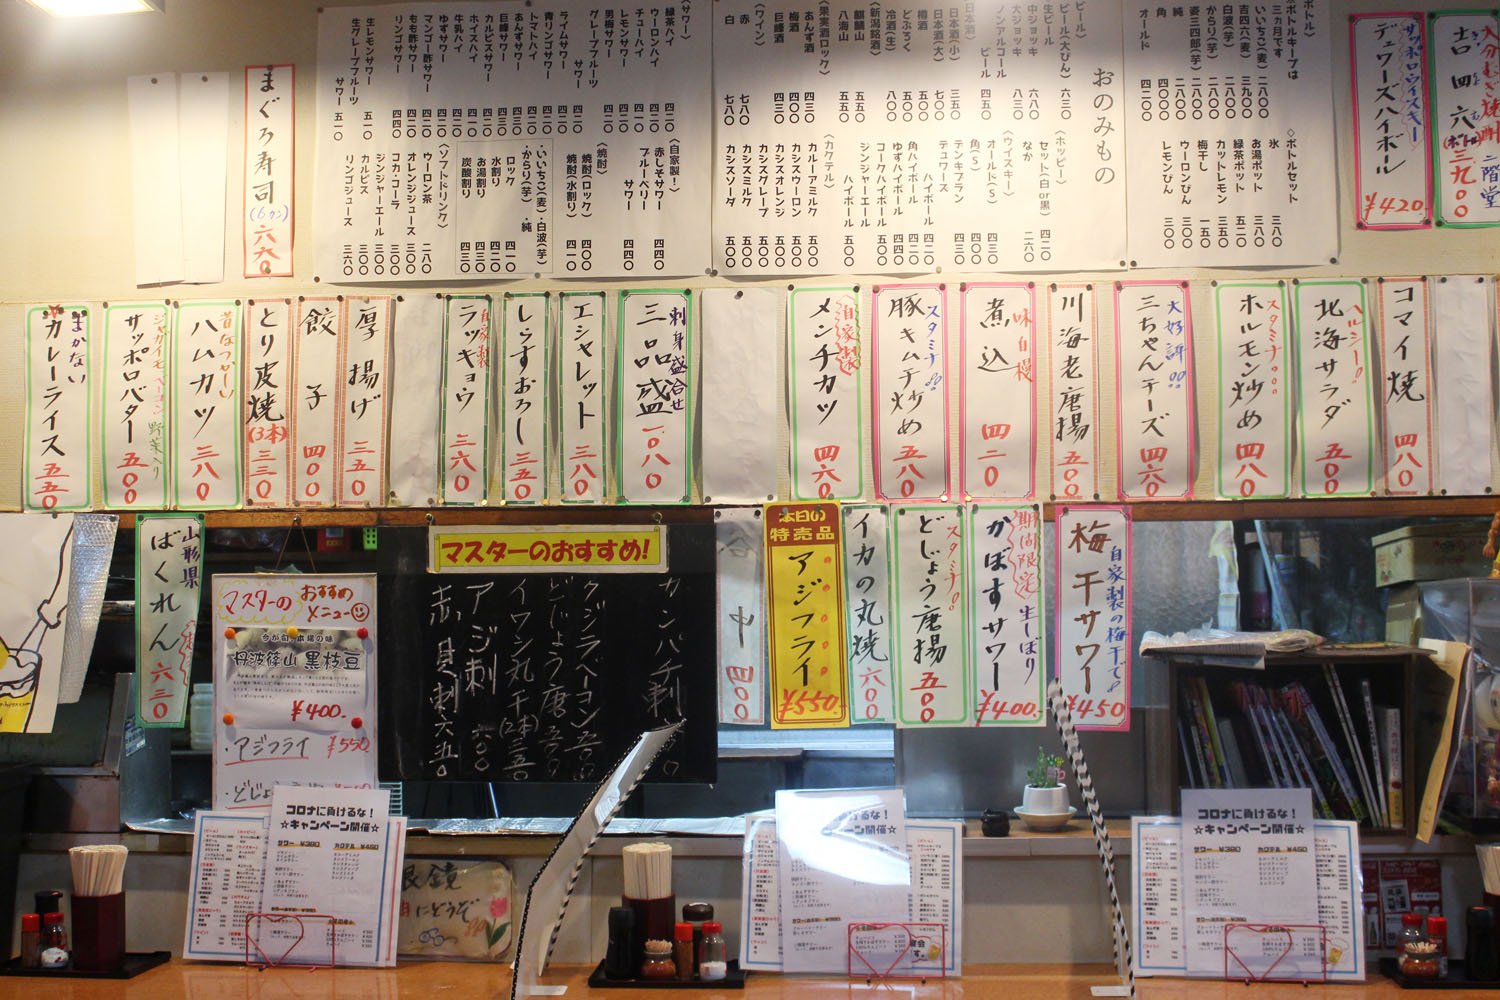 大分むぎ焼酎 二階堂
吉四六(ボトル) 三九〇〇
サッポロウイスキー
デュワーズハイボール
¥420.
おのみもの
※ボトルキープは
三カ月です
いいちこ(麦) 二八〇〇
吉四六(麦) 三九〇〇
白波(芋) 二八〇〇
からり(芋) 二八〇〇
姿三四郎(芋) 二八〇〇
純 二八〇〇
角 四〇〇〇
オールド 四二〇〇
◇ボトルセット
氷 三八〇
お湯ポット 三〇〇
緑茶ポット 五二〇
カットレモン 三五〇
梅干し 一五〇
ウーロンびん 三〇〇
レモンびん 三〇〇
〈ビール〉
ビール(大びん) 六三〇
生ビール
中ジョッキ 六八〇
大ジョッキ 八三〇
ノンアルコール
ビール 四五〇
〈ホッピー〉
セット(白or黒) 四二〇
なか 二六〇
〈ウイスキー〉
オールド(S) 四三〇
角(S)
テンキプラン 四三〇
デュワーズ
ハイボール 四二〇
角ハイボール 四二〇
ゆずハイボール 四四〇
コークハイボール 五〇〇
ジンジャーエール
ハイボール 五〇〇
〈日本酒〉
日本酒(小) 三五〇
日本酒(大) 七〇〇
樽酒 五〇〇
どぶろく 五〇〇
冷酒(生) 八〇〇
〈新潟銘酒〉
麒麟山 五五〇
八海山 五五〇
〈果実酒ロック〉
あんず酒 四三〇
梅酒 四三〇
巨峰酒 四三〇
〈ワイン〉
赤 七八〇
白 七八〇
〈カクテル〉
カルーアミルク 五〇〇
カシスウーロン 五〇〇
カシスオレンジ 五〇〇
カシスグレープ 五〇〇
カシスミルク 五〇〇
カシスソーダ 五〇〇
〈サワー〉
緑茶ハイ 四二〇
ウーロンハイ 四二〇
チューハイ 四二〇
レモンサワー 四二〇
男梅サワー 四二〇
グレープフルーツ
サワー 四二〇
ライムサワー 四二〇
青リンゴサワー 四二〇
トマトハイ 四二〇
あんずサワー 四三〇
カルピスサワー 四二〇
巨峰サワー 四三〇
ホイスハイ 四一〇
牛乳ハイ 四二〇
ゆずサワー 四二〇
マンゴー酢サワー 四二〇
もも酢サワー 四二〇
リンゴサワー 四四〇
生レモンサワー 五一〇
生グレープフルーツ
サワー 五一〇
〈自家製!〉
赤しそサワー 四四〇
ブルーベリー
サワー 四四〇
〈焼酎〉
焼酎(ロック) 四〇〇
焼酎(水割り) 四一〇
・いいちこ(麦)・白波(芋)
・からり(芋) ・純
ロック 四一〇
水割り 四二〇
お湯割り 四三〇
炭酸割り 四三〇
〈ソフトドリンク〉
ウーロン茶 二八〇
オレンジジュース 三〇〇
コカ・コーラ 三〇〇
ジンジャーエール 三〇〇
カルピス 三〇〇
リンゴジュース 三六〇
まぐろ寿司
(6カン)
六六〇
コマイ焼 四八〇
ヘルシー!
北海サラダ 五〇〇
スタミナ
ホルモン炒め 四八〇
大好評
三ちゃんチーズ 四六〇
川海老唐揚 五〇〇
味自慢
煮込 四二〇
スタミナ
豚キムチ炒め 五八〇
自家製
メンチカツ 四六〇
刺身盛合せ
三品盛 一、〇八〇
エシャレット 三八〇
しらすおろし 三五〇
自家製
ラッキョウ 三六〇
厚揚げ 三五〇
餃子 四〇〇
とり皮焼 (3本) 三三〇
昔なつかしい
ハムカツ 三八〇
ジャガイモ ベーコン 野菜入り
サッポロバター 五〇〇
まかない
カレーライス 五五〇
自家製の梅干で
梅干サワー ¥450
期間限定 生しぼり
かぼすサワー ¥400.
スタミナ
どじょう唐揚 五〇〇
イカの丸焼 六〇〇
本日の
特売品
アジフライ
¥550.
谷中 四〇〇
マスターのおすすめ!
カンパチ刺
クジラベーコン 五〇〇
どじょう唐 五〇〇
イワシ丸干(2本) 三五〇
アジ刺 六〇〇
赤貝刺 六五〇
山形県
ばくれん 六三〇
マスターの おすすめ
メニュー
今が旬 本場の味
丹波篠山 黒枝豆
¥400.
・アジフライ ¥550
・どじょ
コロナに負けるな!
☆キャンペーン開催☆
サワー ¥380 カクテル ¥450
コロナに負けるな!
キャンペーン開催☆
コロナに負けるな!
☆キャンペーン開催☆
サワー ¥380 カクテル ¥450